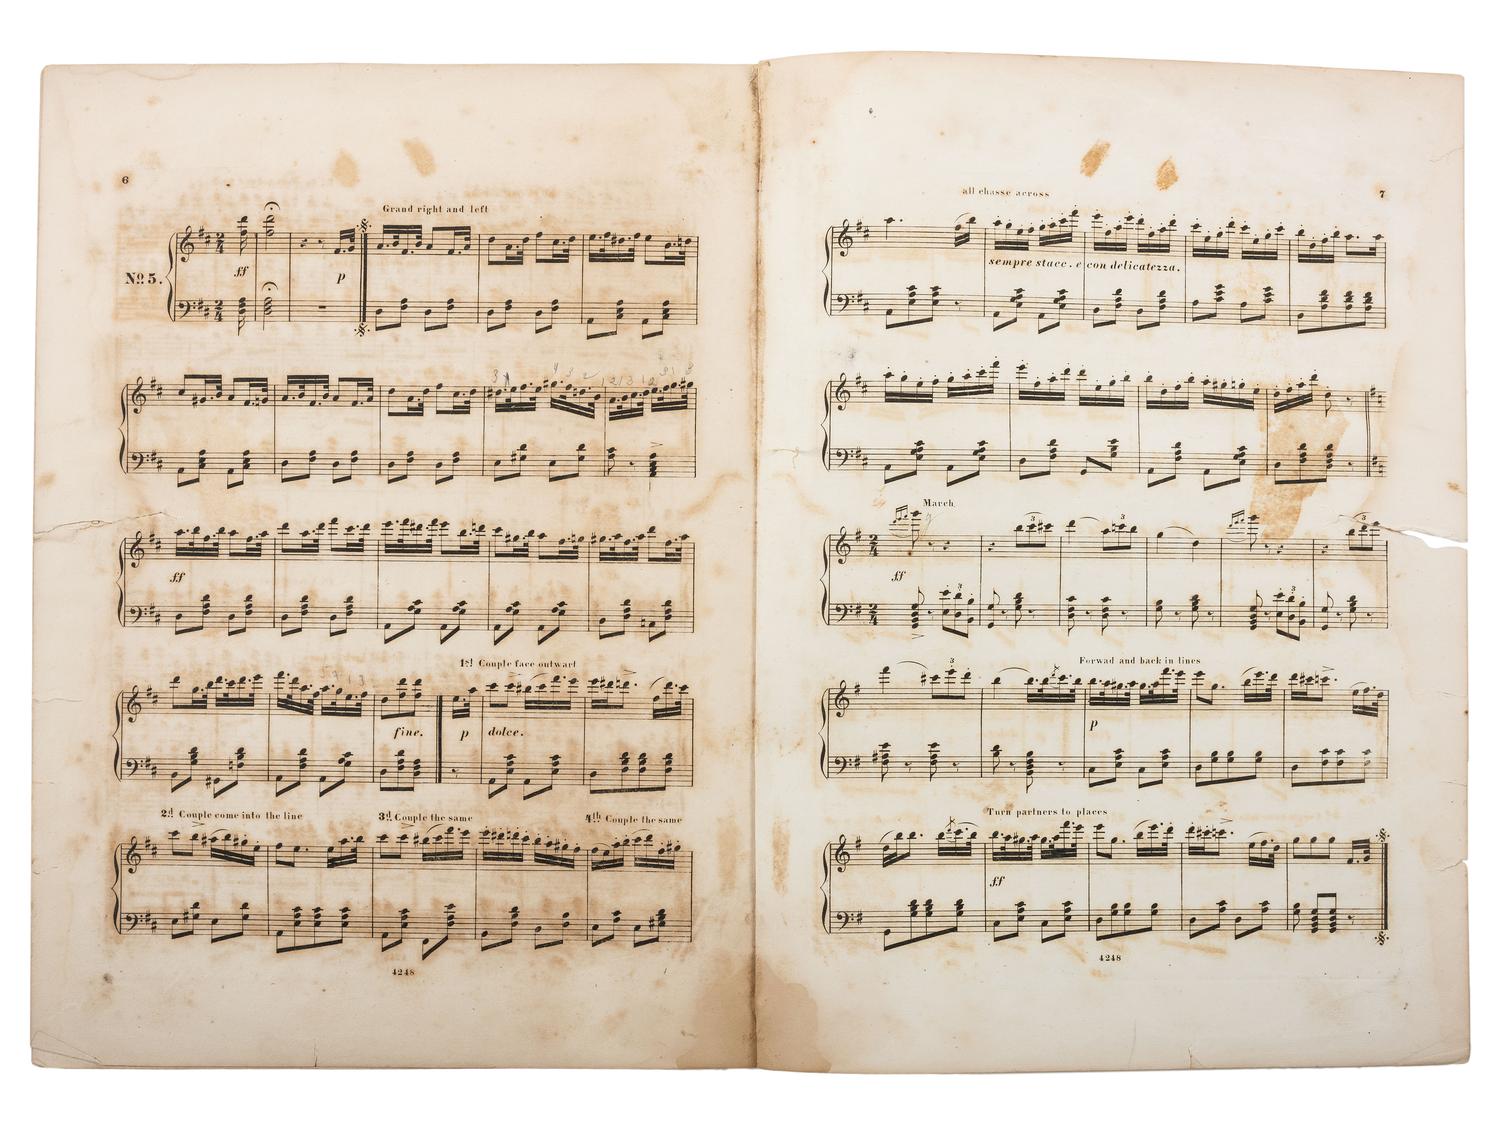 6
Grand right and left
No 5.
ff
p
ff
1st Couple face outwart
fine.
p dolce.
2d Couple come into the line
3d Couple the same
4th Couple the same
4248
7
all chasse across
sempre stacc. e con delicatezza.
March.
3
3
3
ff
3
3
3
Forwad and back in lines
p
Turn partners to places
ff
4248